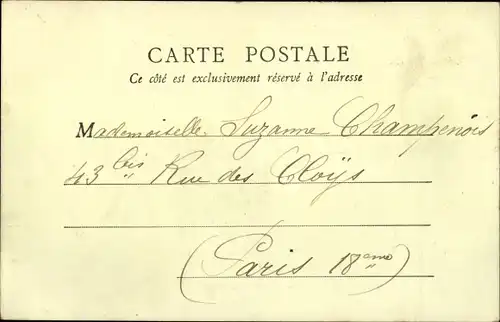 CARTE POSTALE
Ce côté est exclusivement réservé à l'adresse
Mademoiselle Suzanne Champenois
43 bis Rue des Cloÿs
(Paris 18eme)